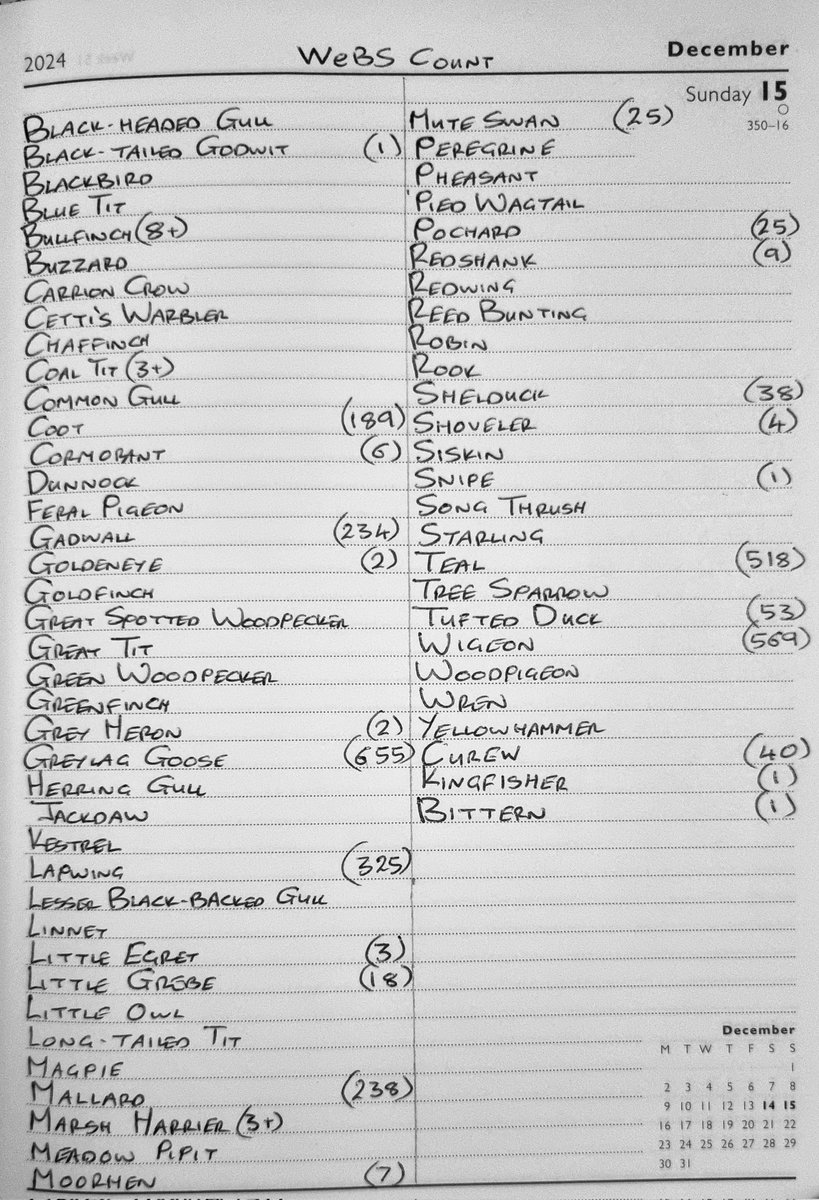 2024 WeBS COUNT December
Sunday 15
350-16
BLACK-HEADED GULL
BLACK-TAILED GODWIT (1)
BLACKBIRD
BLUE TIT
BULLFINCH (8+)
BUZZARD
CARRION CROW
CETTI'S WARBLER
CHAFFINCH
COAL TIT (3+)
COMMON GULL
COOT (189)
CORMORANT (6)
DUNNOCK
FERAL PIGEON
GADWALL (234)
GOLDENEYE (2)
GOLDFINCH
GREAT SPOTTED WOODPECKER
GREAT TIT
GREEN WOODPECKER
GREENFINCH
GREY HERON (2)
GREYLAG GOOSE (655)
HERRING GULL
JACKDAW
KESTREL
LAPWING (325)
LESSER BLACK-BACKED GULL
LINNET
LITTLE EGRET (3)
LITTLE GREBE (18)
LITTLE OWL
LONG-TAILED TIT
MAGPIE
MALLARD (238)
MARSH HARRIER (3+)
MEADOW PIPIT
MOORHEN (7)
MUTE SWAN (25)
PEREGRINE
PHEASANT
PIED WAGTAIL
POCHARD (25)
REDSHANK (9)
REDWING
REED BUNTING
ROBIN
ROOK
SHELDUCK (38)
SHOVELER (4)
SISKIN
SNIPE (1)
SONG THRUSH
STARLING
TEAL (518)
TREE SPARROW
TUFTED DUCK (53)
WIGEON (569)
WOODPIGEON
WREN
YELLOWHAMMER
CUREW (40)
KINGFISHER (1)
BITTERN (1)
December
M T W T F S S
1
2 3 4 5 6 7 8
9 10 11 12 13 14 15
16 17 18 19 20 21 22
23 24 25 26 27 28 29
30 31